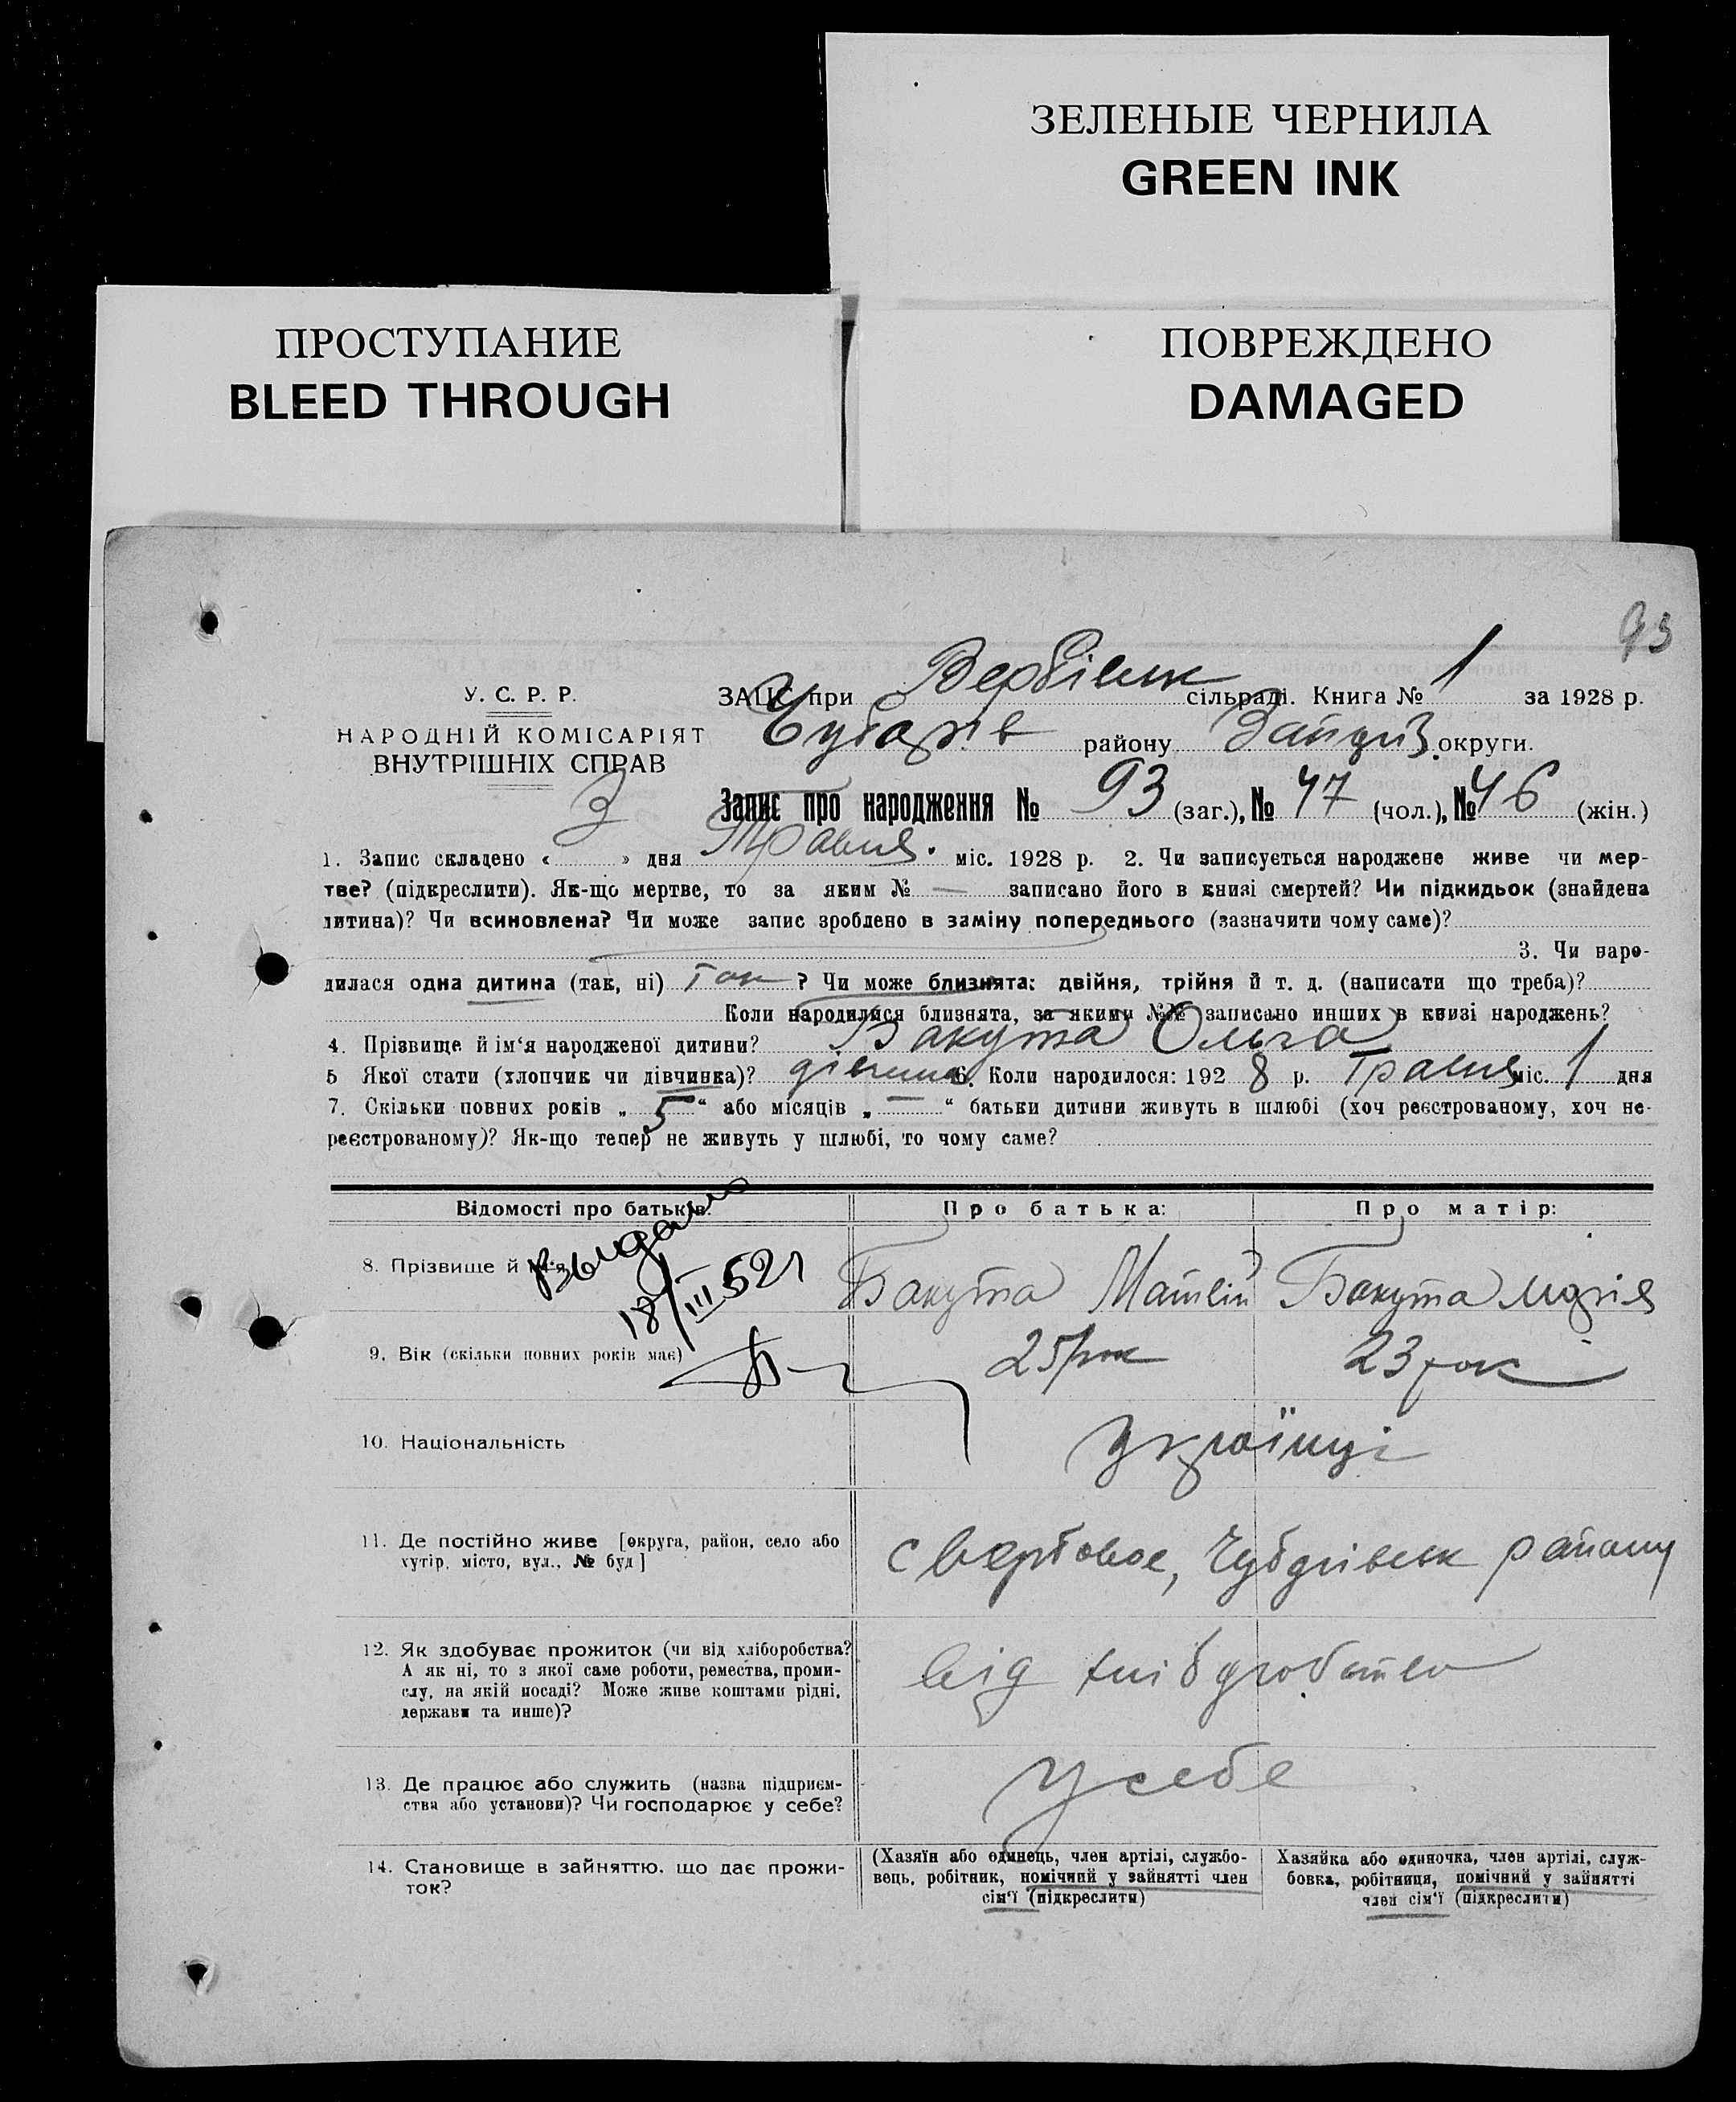 ЗЕЛЕНЫЕ ЧЕРНИЛА
GREEN INK
ПРОСТУПАНИЕ
BLEED THROUGH
ПОВРЕЖДЕНО
DAMAGED
93
У. С. Р. Р.
НАРОДНІЙ КОМІСАРІЯТ
ВНУТРІШНІХ СПРАВ
ЗАЦС при Вербівськ сільраді. Книга № 1 за 1928 р.
Чубарів району Запоріз округи.
Запис про народження № 93 (заг.), № 47 (чол.), № 46 (жін.)
1. Запис складено « 3 » дня Травня міс. 1928 р. 2. Чи записується народжене живе чи мер-
тве? (підкреслити). Як-що мертве, то за яким № — записано його в книзі смертей? Чи підкидьок (знайдена
дитина)? Чи всиновлена? Чи може запис зроблено в заміну попереднього (зазначити чому саме)?
3. Чи наро-
дилася одна дитина (так, ні) так ? Чи може близнята: двійня, трійня й т. д. (написати що треба)?
Коли народилися близнята, за якими №№ записано инших в книзі народжень?
4. Прізвище й ім‘я народженої дитини? Бакута Ольга
5 Якої стати (хлопчик чи дівчинка)? дівчина 6. Коли народилося: 192 8 р. Травня міс. 1 дня
7. Скільки повних років „ 5 “ або місяців „ — “ батьки дитини живуть в шлюбі (хоч реєстрованому, хоч не-
реєстрованому)? Як-що тепер не живуть у шлюбі, то чому саме?
Відомості про батьків: Про батька: Про матір:
8. Прізвище й ім‘я Бакута Матвій Бакута Марія
Выдано
18/III 52г
9. Вік (скільки повних років має) 25 рок 23 рок
10. Національність Українці
11. Де постійно живе [округа, район, село або
хутір, місто, вул., № буд]
с Вербове, Чубарівськ району
12. Як здобуває прожиток (чи від хліборобства?
А як ні, то з якої саме роботи, ремества, проми-
слу, на якій посаді? Може живе коштами рідні,
держави та инше)?
від хліборобства
13. Де працює або служить (назва підприєм-
ства або установи)? Чи господарює у себе?
У себе
14. Становище в зайняттю, що дає прожи-
ток?
(Хазяїн або одинець, член артілі, службо-
вець, робітник, помічний у зайнятті член
сім‘ї (підкреслити)
Хазяйка або одиночка, член артілі, служ-
бовка, робітниця, помічний у зайнятті
член сім‘ї (підкреслити)